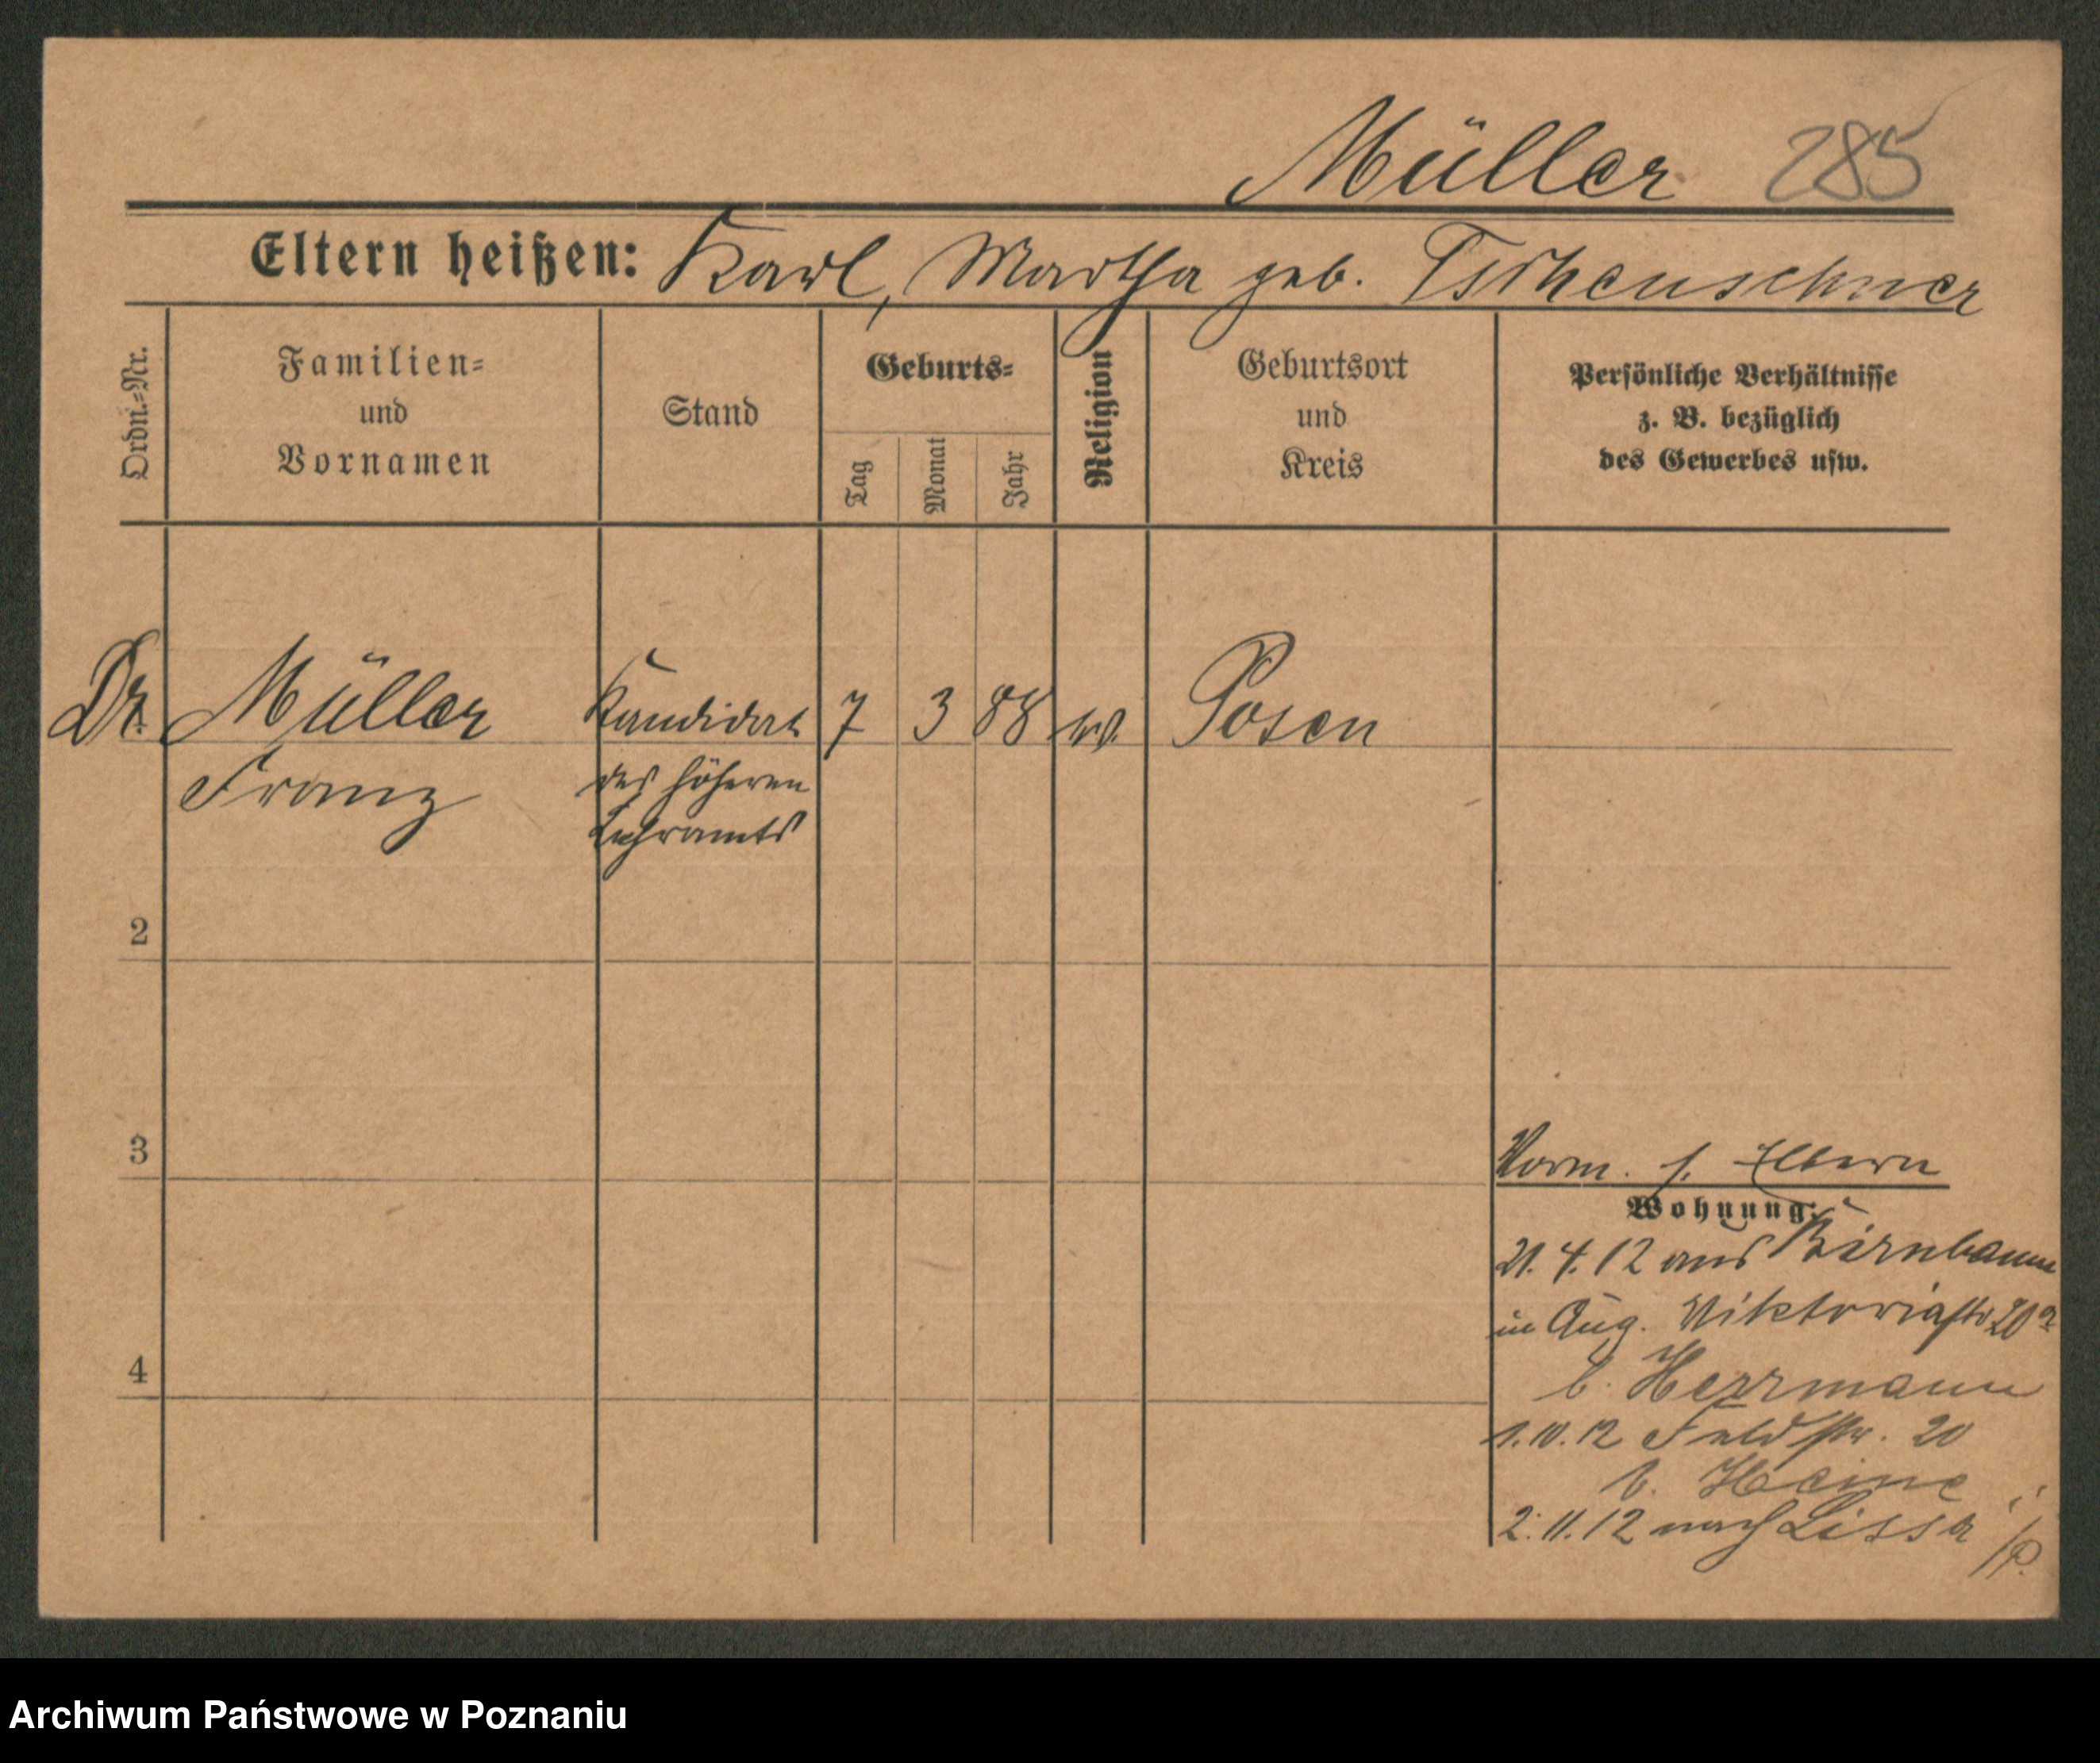 Müller 285
Eltern heißen: Karl, Martha geb. Tscheuschner
Ordn.-Nr.
Familien-
und
Vornamen
Stand
Geburts-
Tag
Monat
Jahr
Religion
Geburtsort
und
Kreis
Persönliche Verhältnisse
z. B. bezüglich
des Gewerbes usw.
Dr. Müller Kandidat 7 3 88 ev. Posen
Franz des höheren
Lehramts
2
3
Vorm. s. Eltern
Wohnung:
21.4.12 aus Birnbaum
in Aug. Viktoriastr 20a
4
b. Herrmann
1.10.12 Feldstr. 20
b. Heine
2.11.12 nach Lissa i/P.
Archiwum Państwowe w Poznaniu